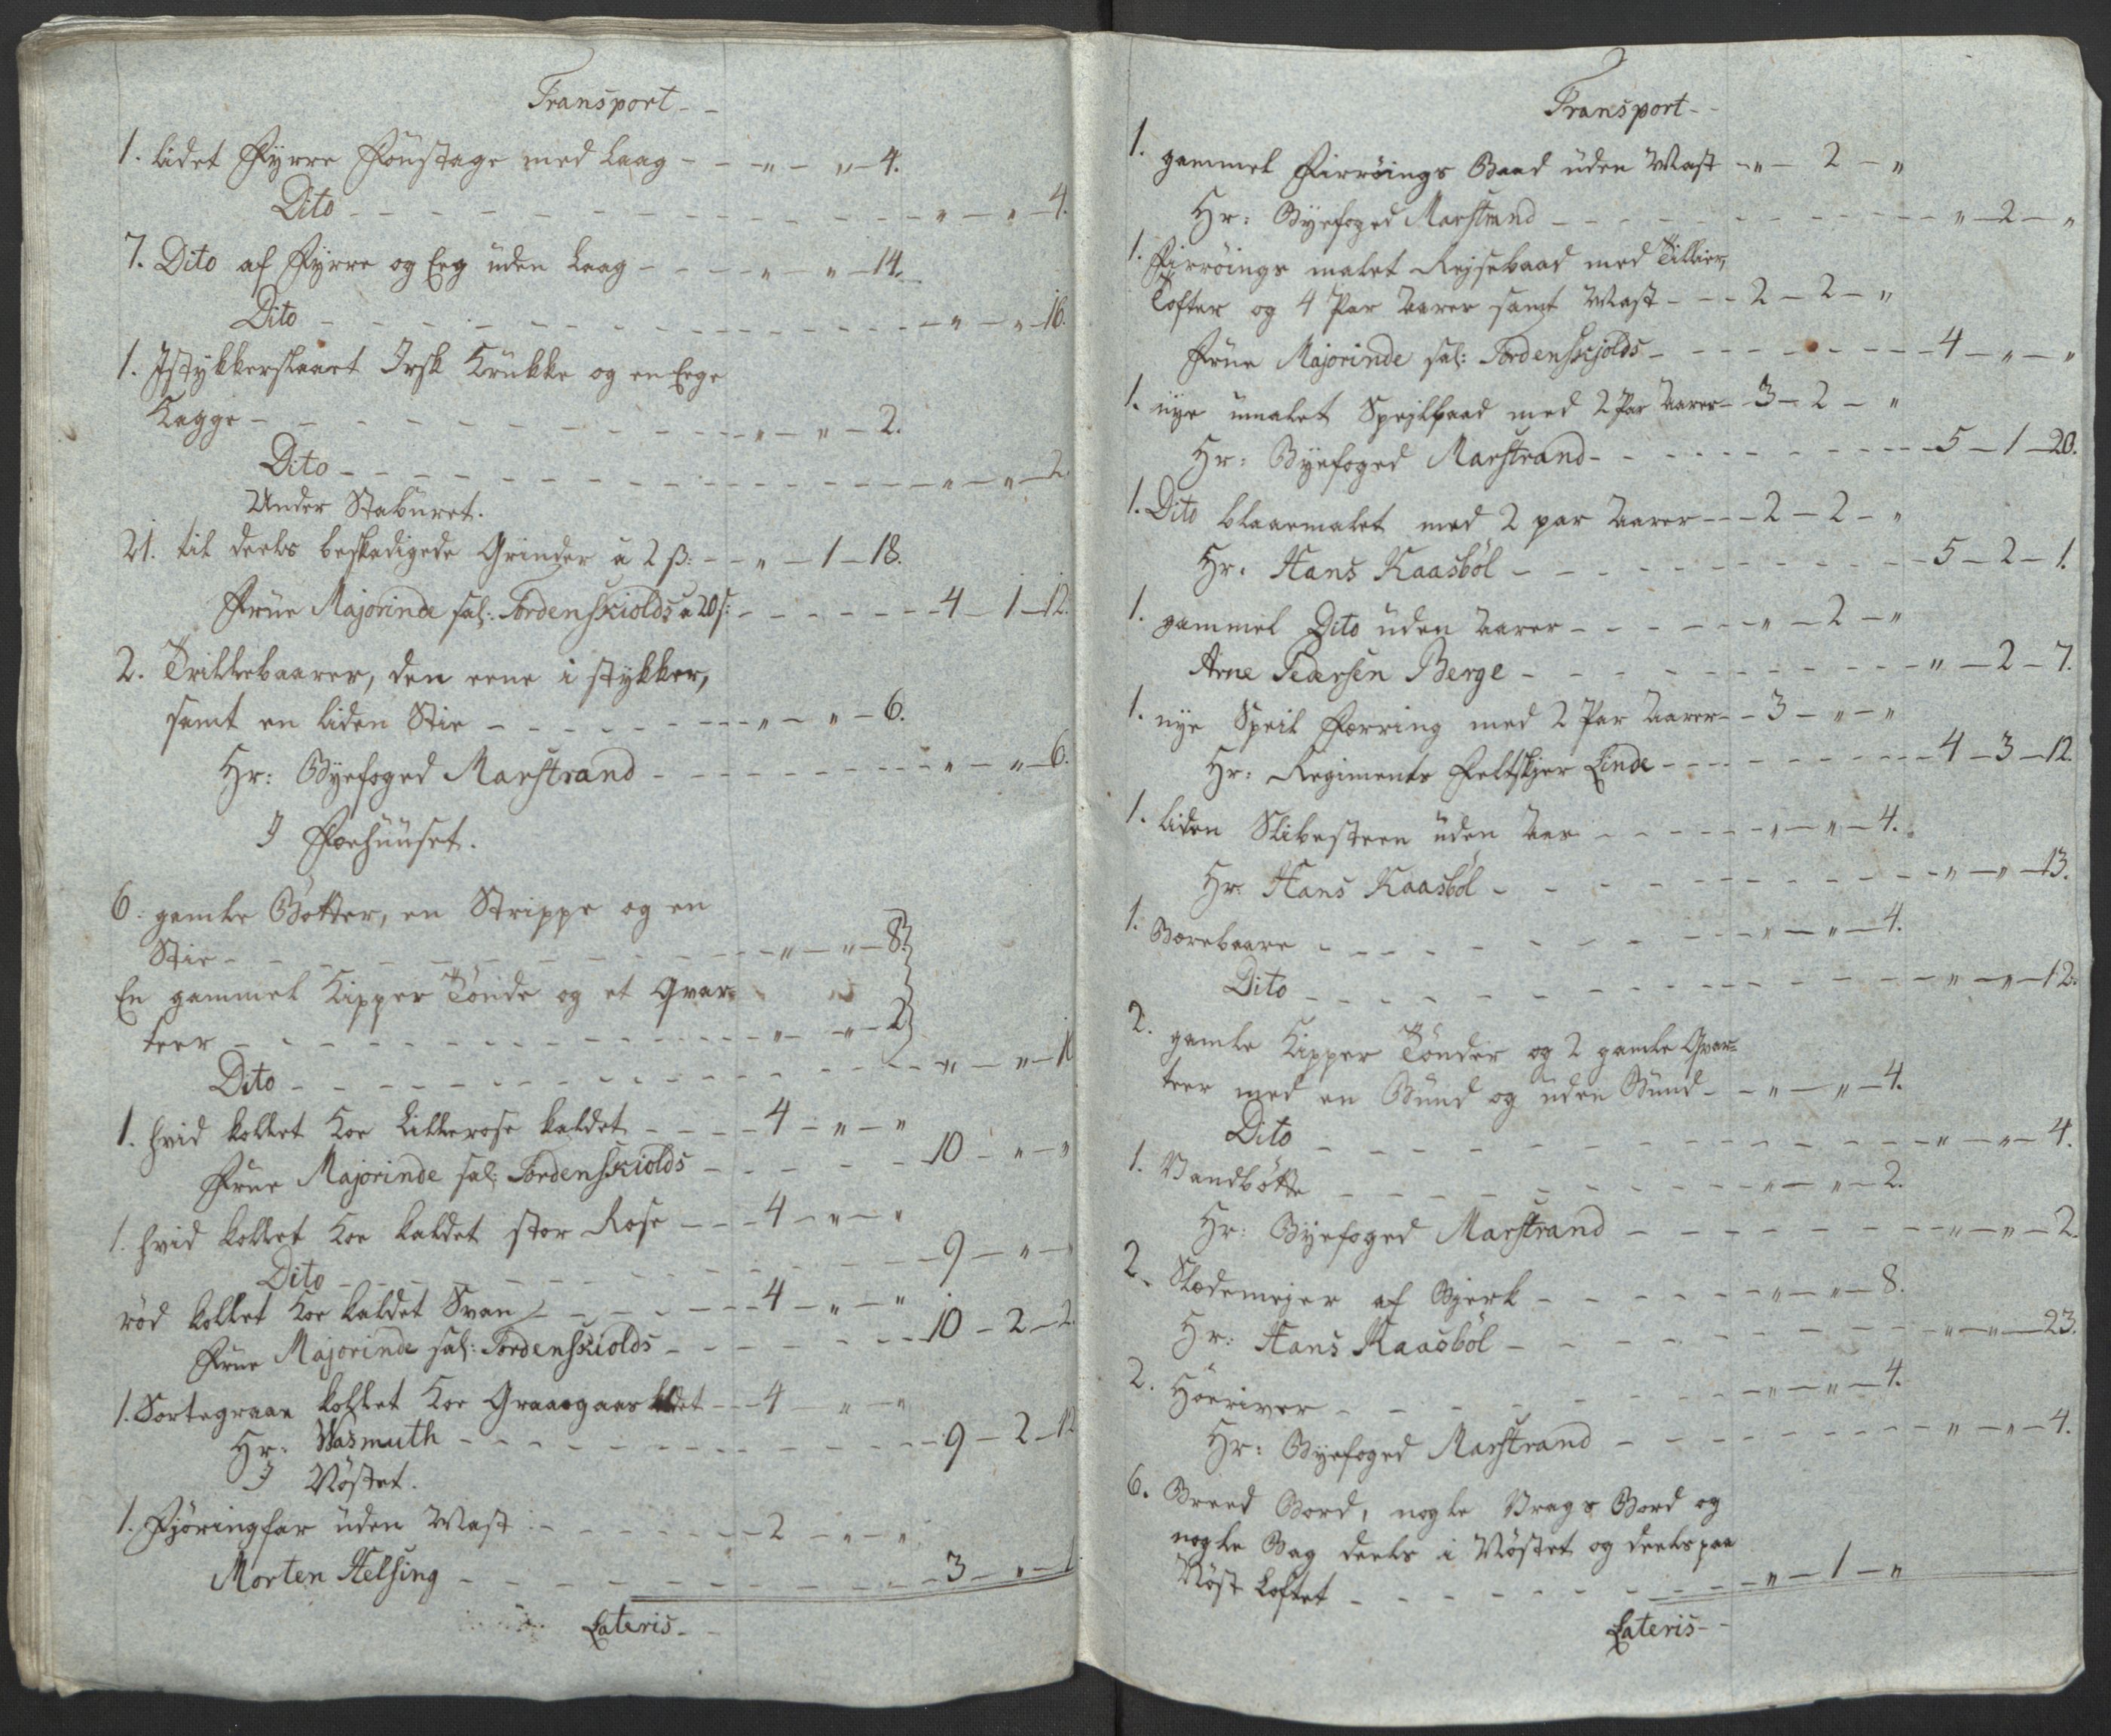 Transport - -
1. lidet Fyrre Foustage med Laag - - - " - " - 4.
Dito - - - - - - - - - " - " - 4.
7. Dito af Fyrre og Eeg uden Laag - - - - " - " - 14.
Dito - - - - - - - - - " - " - 16.
1. Istykkerslaaet Jrsk Krukke og en Eege
Kagge - - - - - - - - " - " - 2.
Dito - - - - - - - - - " - " - 2.
Under Staburet.
21. til deels beskadigede Grinder a 2 ß: - - " - 1 - 18.
Frue Majorinde sal: Tordenskiolds a 20 s: - - - - - 4 - 1 - 12.
2. Trillebaarer, den eene i stykker,
samt en liden Stie - - - - - - " - " - 6.
Hr: Byefoged Marstrand - - - - - - - " - " - 6.
I Foehuuset.
6. gamle Bøtter, en Strippe og en
Stie - - - - - - - - - " - " - 8.
En gammel Kipper Tønde og et Qvar=
teer - - - - - - - - - " - " - 2.
Dito - - - - - - - - - " - " - 10
1. hvid kollet Koe Lillerose kaldet - - - - 4 - " - "
Frue Majorinde sal: Tordenskiolds - - - - - 10 - " - "
1. hvid kollet Koe kaldet stor Rose - - - 4 - " - "
Dito - - - - - - - - - 9 - " - "
rød kollet Koe kaldet Svan - - - - - 4 - " - "
Frue Majorinde sal: Tordenskiolds - - - - - 10 - 2 - 2.
1. Sortegraae kollet Koe Graaegaas kaldet - - 4 - " - "
Hr: Wasmuth - - - - - - - - 9 - 2 - 12
I Nøstet.
1. Fjøringfar uden Mast - - - - - - 2 - " - "
Morten Helsing - - - - - - - - 3 - " - 1
Lateris - -
Transport - -
1. gammel Firrøings Baad uden Mast - " - 2 - "
Hr: Byefoged Marstrand - - - - - - - " - 2 - "
1. Firrøings malet Rejsebaad med Tillier,
Tofter og 4 Par Aarer samt Mast - - - 2 - 2 - "
Frue Majorinde sal: Tordenskjolds - - - - - - 4 - " - "
1. nye umalet Spejlbaad med 2 Par Aarer - 3 - 2 - "
Hr: Byefoged Marstrand - - - - - - - 5 - 1 - 20.
1. Dito blaaemalet med 2 par Aarer - - - 2 - 2 - "
Hr. Hans Kaasbøl - - - - - - - - 5 - 2 - 1.
1. gammel Dito uden Aarer - - - - - " - 2 - "
Arne Pedersen Berge - - - - - - - " - 2 - 7.
1. nye Speil Færring med 2 Par Aarer - - 3 - " - "
Hr: Regiments Feltskjer Linde - - - - - - 4 - 3 - 12.
1. liden Slibesteen uden Aas - - - - - " - " - 4.
Hr. Hans Kaasbøl - - - - - - - - " - " - 13.
1. Bærebaare - - - - - - - - " - " - 4.
Dito - - - - - - - - - " - " - 12.
2. gamle Kipper Tønder og 2 gamle Qvar=
teer med en Bund og uden Bund - - " - " - 4.
Dito - - - - - - - - - " - " - 4.
1. Vandbøtte - - - - - - - - " - " - 2.
Hr: Byefoged Marstrand - - - - - - - " - " - 2.
2. Slædemejer af Bjerk - - - - - - " - " - 8.
Hr: Hans Kaasbøl - - - - - - - - " - " - 23.
2. Høeriver - - - - - - - - " - " - 4.
Hr: Byefoged Marstrand - - - - - - - " - " - 4.
6. Breed Bord, nogle Vrags Bord og
nogle Bag deels i Nøstet og deels paa
Nøst Loftet - - - - - - - - " - 1 - "
Lateris - -